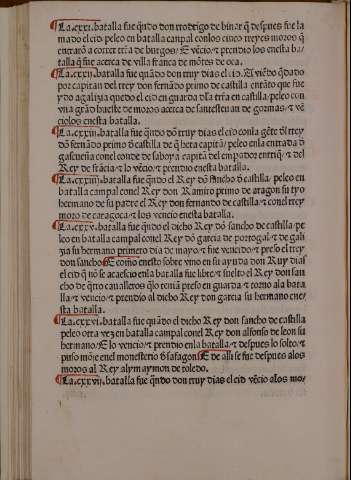 ¶La .cxxi. batalla fue q̃ndo don rrodrigo de binar q̃ despues fue lla
mado el cid peleo en batalla canpal conlos cinco reyes moros q̃
entrarõ a correr trr̃a de burgos/ E vẽcio/ ⁊ prendio los enesta ba/
talla q̃ fue acerca de villa franca de mõtes de oca.
¶La .cxxii. batalla fue quãdo don ruy dias el cid. Auiẽdo q̃dado
por capitan del rrey don fernãdo primo de castilla entãto que fue
y do a galizia quedo el cid en guarda dla trr̃a en castilla/ peleo con
vna grãd hueste de moros acerca de santesteuan de gormas/ ⁊ vẽ
ciolos enesta batalla.
¶La .cxxiii. batalla fue q̃ndo dõ rruy dias el cid conla gẽte dl rrey
dõ fernãdo primo d̃ castilla de q̃ hera capitã/ peleo enla entrada d̃
gascueña conel conde de saboya capitã del enpador enrriq̃/ ⁊ del
Rey de frãcia/ ⁊ lo vẽcio/ ⁊ prendio enesta batalla.
¶La .cxxiiii. batalla fue q̃ndo el Rey dõ sancho d̃ castilla/ peleo en
batalla campal conel Rey don Ramiro primo de aragon su tyo
hermano de su padre el Rey don fernando de castilla/ ⁊ conel rrey
moro de caragoca/ ⁊ los vencio enesta batalla.
¶La .cxxv. batalla fue quãdo el dicho Rey dõ sancho de castilla/ pe
leo en batalla campal conel Rey dõ garcia de portogal/ ⁊ de gali
zia su hermano primero dia de mayo/ ⁊ fue vencido/ ⁊ preso el rrey
don sancho E como enesto sobre vino en su ayuda don Ruy dias
el cid q̃ nõ se acaescio enla batalla fue libre/ ⁊ suelto el Rey don san
cho de q̃tro caualleros q̃lo teniã preso en guarda/ ⁊ torno ala bata
lla/ ⁊ vencio/ ⁊ prendio al dicho Rey don garcia su hermano ene/
sta batalla.
¶La .cxxvi. batalla fue quãdo el dicho Rey don sancho de castilla
peleo otra vez en batalla campal conel Rey don alfonso de leon su
hermano/ E lo vencio/ ⁊ prendio enla batalla/ ⁊ despues lo solto/ ⁊
puso mõje enel monesterio d̃ safagon E de alli se fue despues alos
moros al Rey alymaymon de toledo.
¶La .cxxvii. batalla fue q̃ndo don rruy dias el cid vẽcio alos mo/